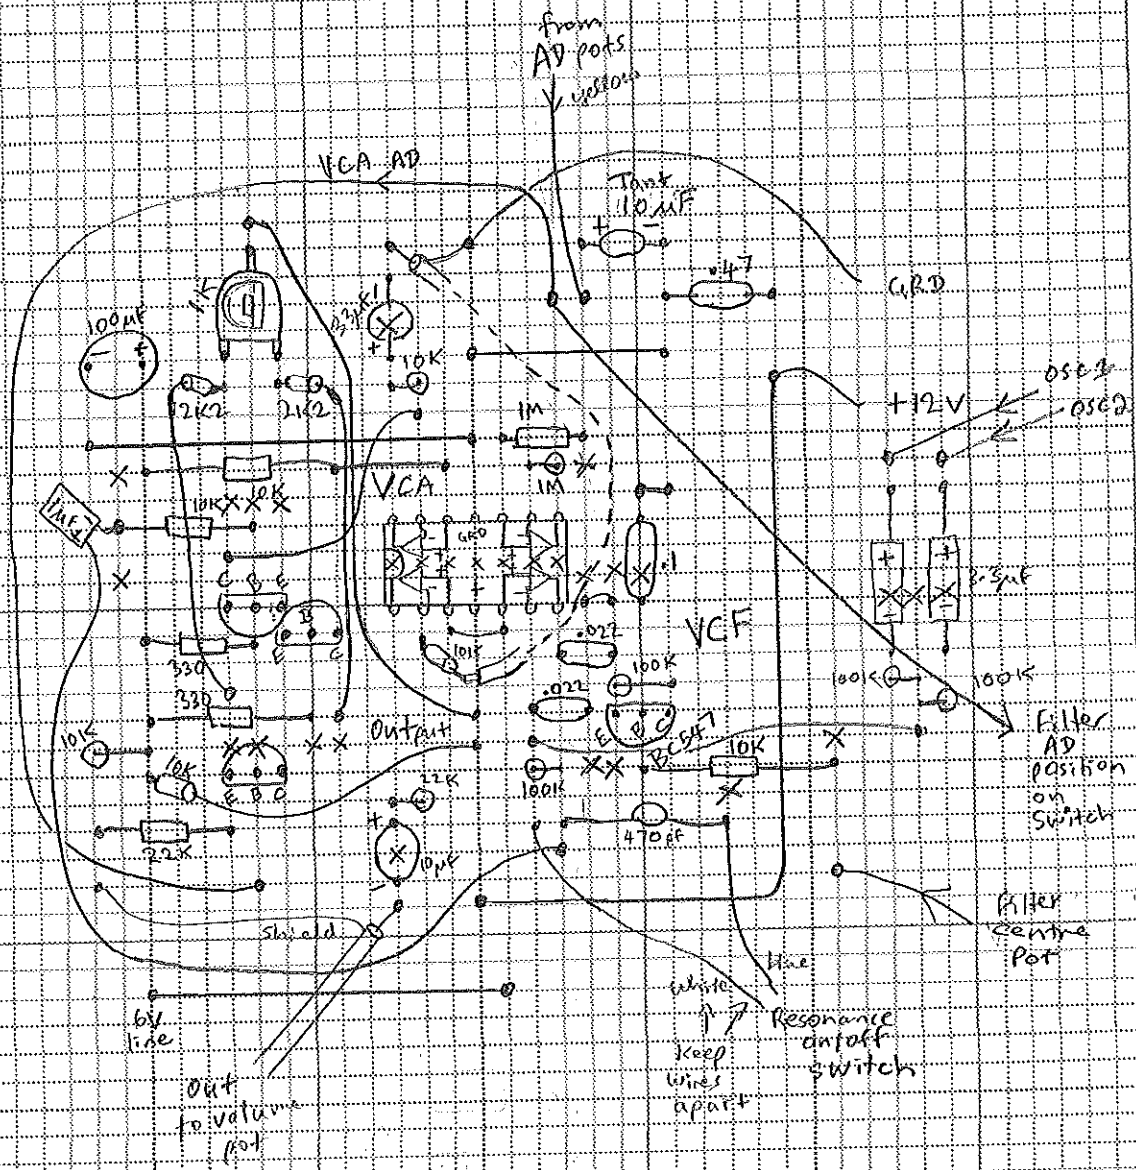 from
AD pots
yellow
VCA AD
Tant
10µF
+ -
.47
GRD
100µF
- +
1K
+
10K
2K2
2K2
1M
1M
+12V
OSC1
OSC2
VCA
10K
10K
GRD
.1
+
+
3.3µF
-
C B E
B
E C
330
330
10K
.022
.022
100K
VCF
100K
100K
E B C
BC547
10K
100K
Output
10K
10K
E B C
22K
22K
+
10µF
-
470pF
Filter
AD
position
on
Switch
Filter
Centre
Pot
shield
6V
line
Out
to volume
pot
White
blue
Keep
wires
apart
Resonance
on/off
switch